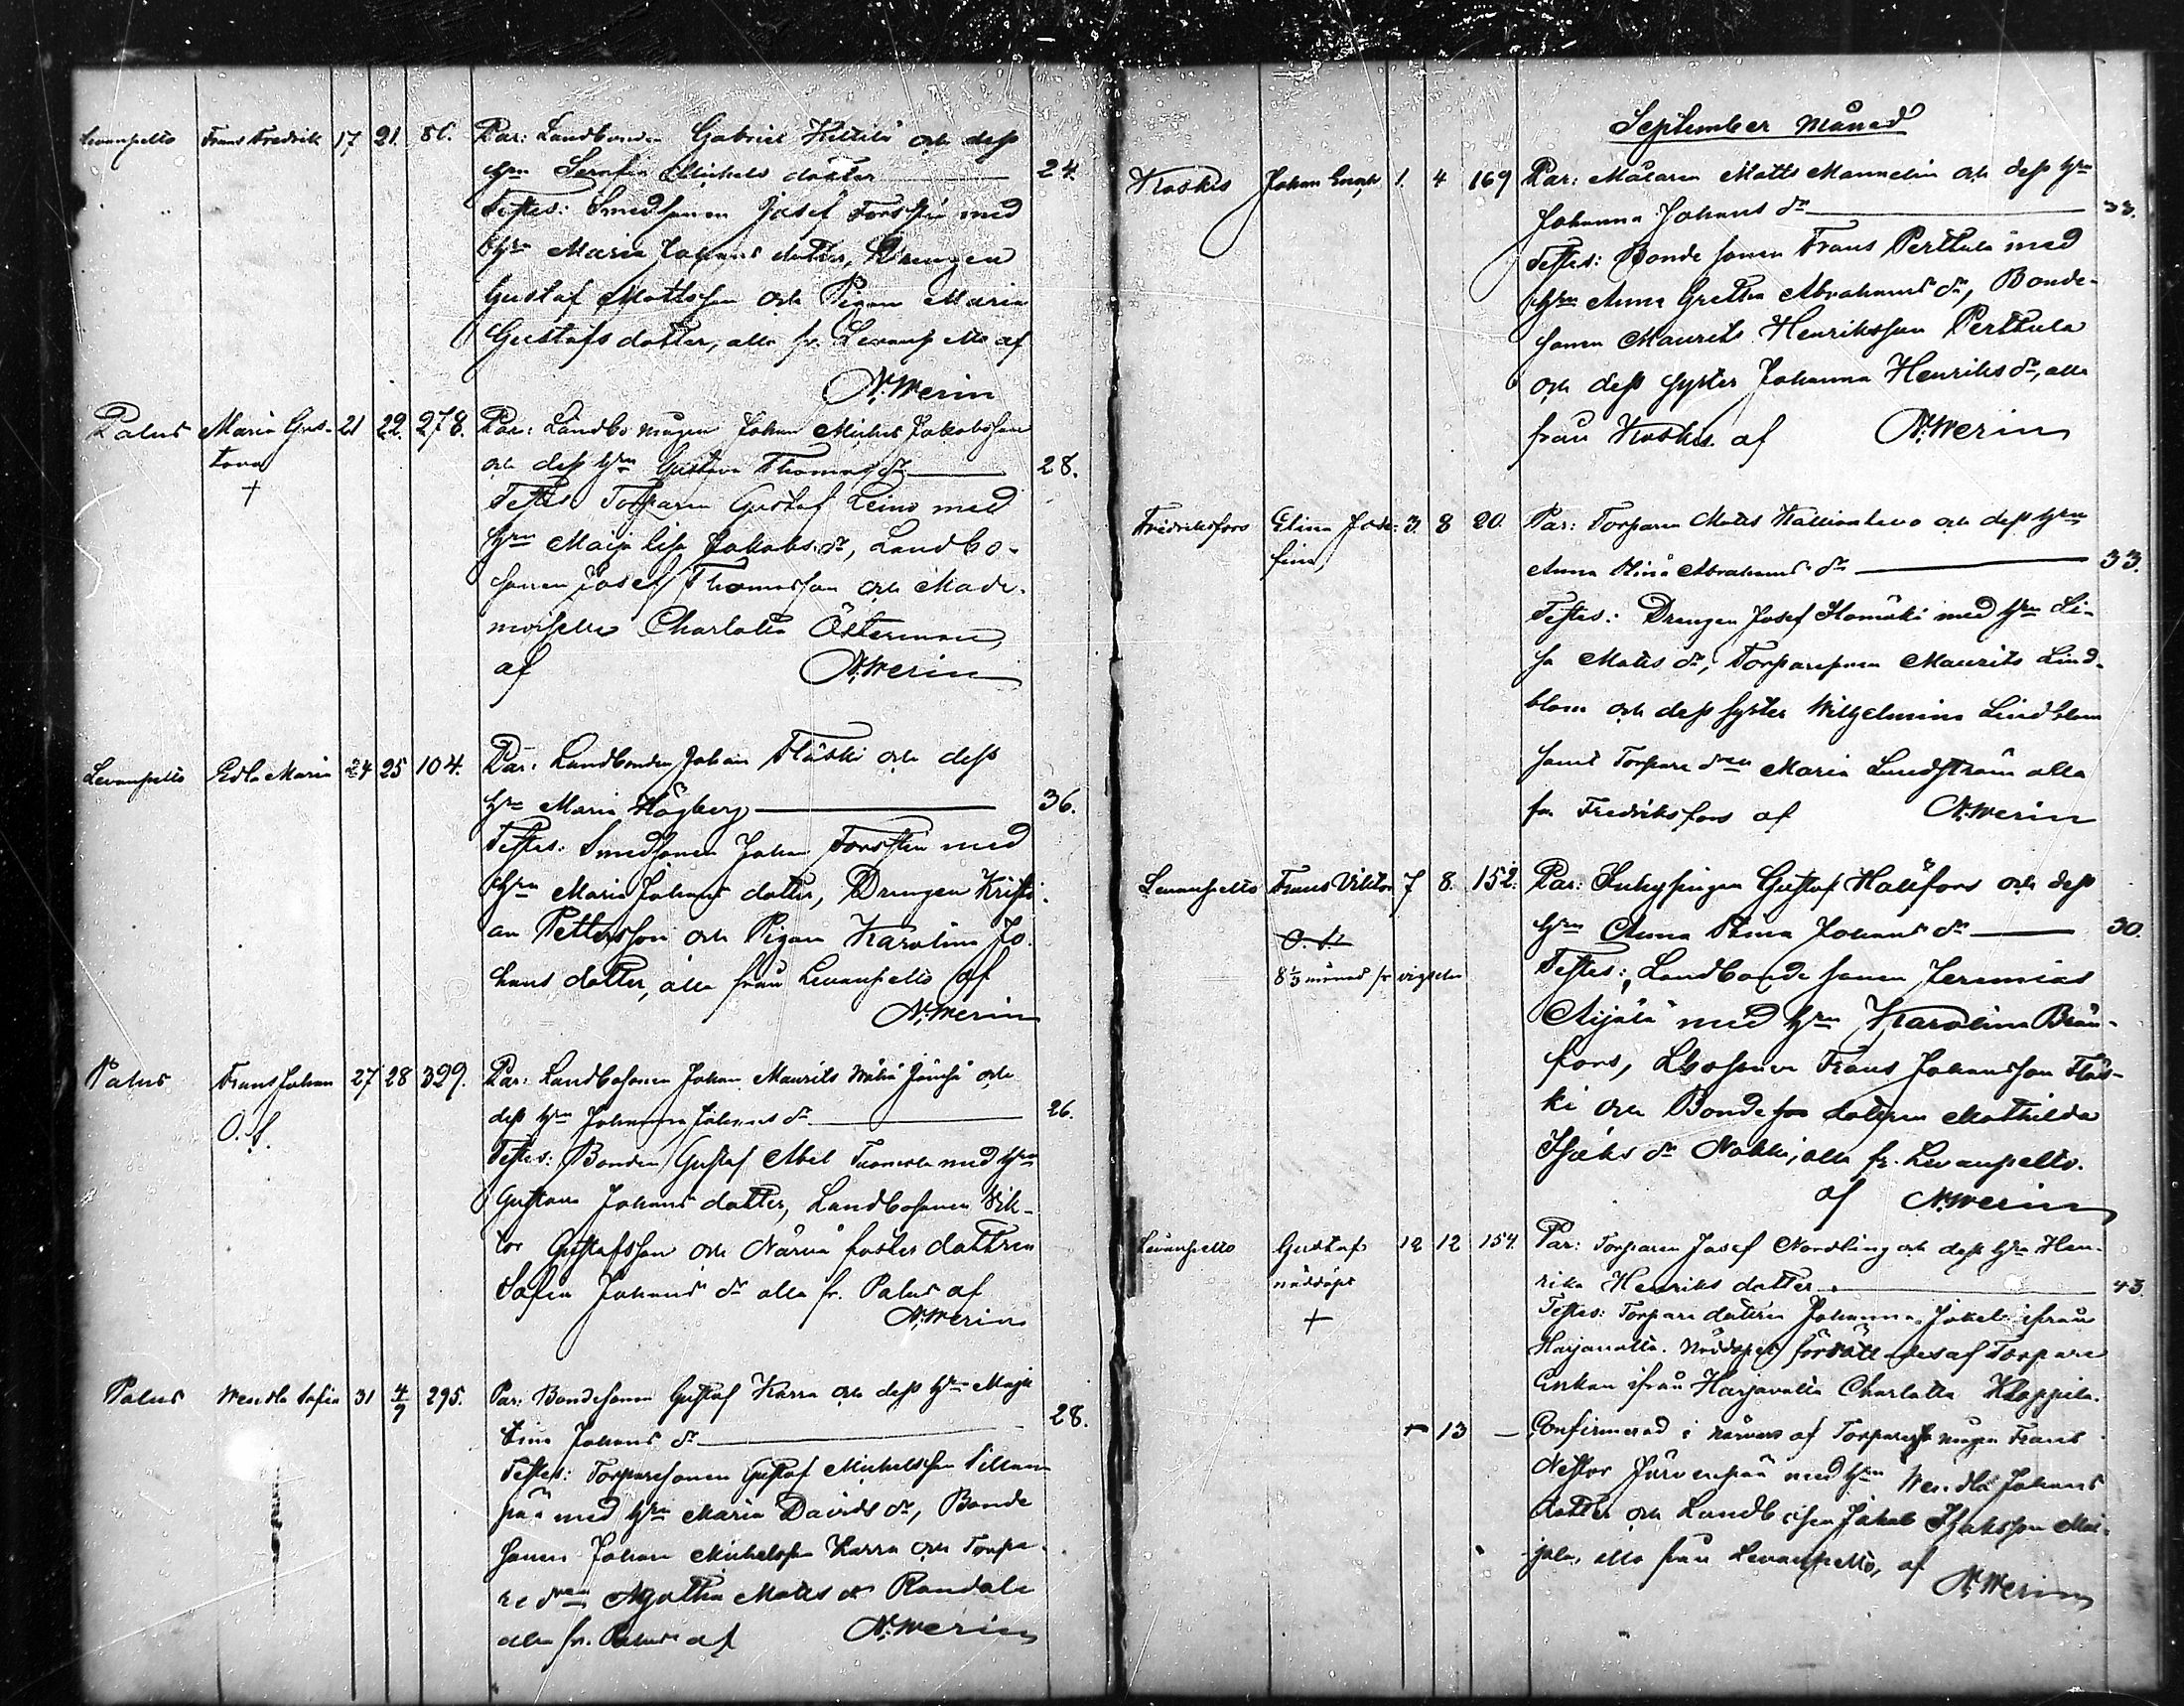 Levanpelto Frans Fredrik 17 21. 86. Par: Landbonden Gabriel Kittilä och dess
hru Serafia Michels dotter 24.
Testes: Smedsonen Josef Forsstén med
hru Maria Johans dotter, Drengen
Gustaf Mattsson och Pigan Maria
Gustafs dotter, alla fr. Levanpelto af
N. Merin
Palus Maria Gus- 21 22. 278. Par: Landbo mågen Johan Michel Jakobsson
tava och dess hru Gustava Thomas dr 28.
+ Testes Torparen Gustaf Leino med
hru Maija Lisa Jakobs dr, Landbo-
sonen Josef Thomasson och Made-
moiselle Charlotta Österman
af N. Merin
Levanpelto Edla Maria 24 25 104. Par: Landbonden Johan Fläski och dess
hru Maria Högberg 36.
Testes: Smedsonen Johan Forsstén med
hru Maria Johans dotter, Drengen Kristi-
an Pettersson och Pigan Karolina Jo-
hans dotter, alla från Levanpelto af
N. Merin
Palus Frans Johan 27 28 329. Par: Landbosonen Johan Maurits och
O. S. dess hru Johanna Johans dr 26.
Testes: Bonden Gustaf Abel Tuomola med hru
Gustava Johans dotter, Landbosonen Vik-
tor Gustafsson och foster dottren
Sofia Johans dr alla fr. Palus af
N. Merin
Palus Wendla Sofia 31 4/9 295. Par: Bondesonen Gustaf Karra och dess hru Maja
Stina Johans dr 28.
Testes: Torparesonen Gustaf Michelsson Sillan-
pää med hru Maria Davids dr, Bonde
sonen Johan Michelsson Karra och Torpa-
re dren Agatha Matts dr Randala
alla fr. Palus af N. Merin
September Månad
Koskis Johan Enok 1. 4 169 Par: Målaren Matts Mannelin och dess hru
Johanna Johans dr 33.
Testes: Bonde sonen Frans Perttula med
hru Anna Gretha Abrahams dr, Bonde-
sonen Maurits Henriksson Perttula
och dess syster Johanna Henriks dr, alla
från Koskis af N. Merin
Fredriksfors Elina Jose- 3. 8 20. Par: Torparen Matts Kallionlevo och dess hru
fina Anna Stina Abrahams dr 33.
Testes: Drengen Josef Ilomäki med hru Li-
sa Matts dr, Torparesonen Maurits Lind-
blom och dess syster Wilhelmina Lindblom
samt Torpare dren Maria Lundström alla
fr. Fredriksfors af N. Merin
Levanpelto Frans Viktor 7 8. 152. Par: Inhysingen Gustaf Hallfors och dess
hru Anna Stina Johans dr 30.
8 1/3 månad fr vigseln Testes: Landbonde sonen Jeremias
Äijälä med hru Karolina Brän-
fors, Lbosonen Frans Johansson Fläs-
ki och Bonde dottren Mathilda
Isaks dr Nakki, alla fr. Levanpelto.
af N. Merin
Levanpelto Gustaf 12 12 154. Par: Torparen Josef Nordling och dess hru Hen-
nöddöpt rika Henriks dotter 43.
+ Testes: Torpare dottren Johanna Jakobs ifrån
Harjavalta. Nöddopet förrättades af Torpare
Enkan ifrån Harjavalta Charlotta Klappila.
13 – Confirmerad i närvaro af Torpare mågen Frans
Nestor Järvenpää med hru Wendla Johans
dotter och Landbosonen Jakob Isaksson Mai-
jala, alla från Levanpelto, af
N. Merin